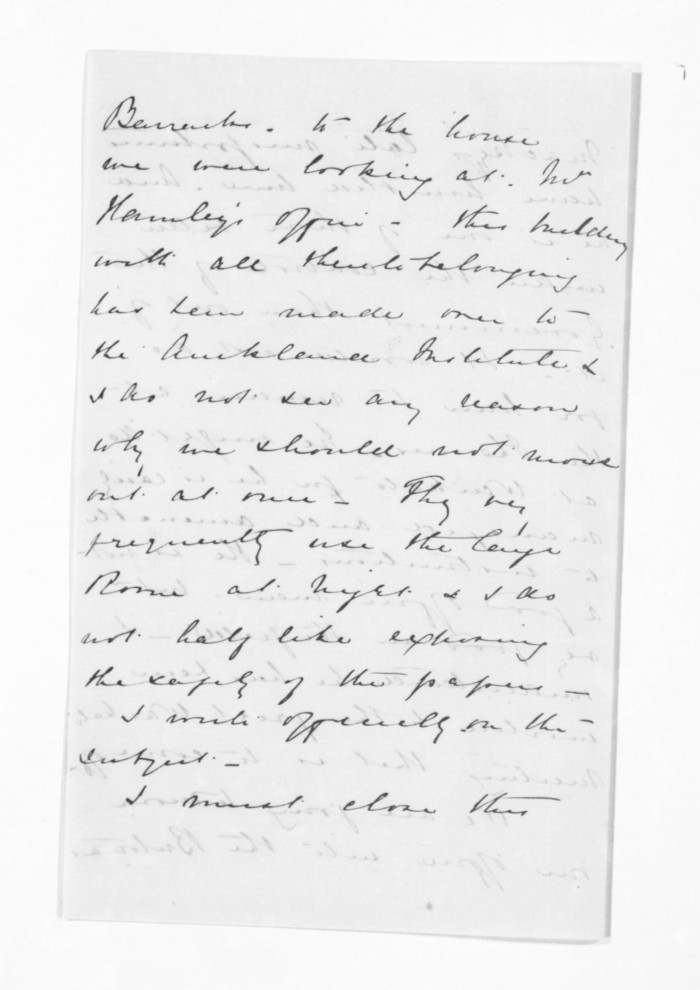 Barracks. to the house
we were looking at. Mr
Hamley's office - this building
with all thereto belonging
has been made over to
the Auckland Institute &
I do not see any reason
why we should not move
out at once - They very
frequently use the large
Room at night & I do
not half like exposing
the safety of the papers -
I write officially on the
subject -
I must close this